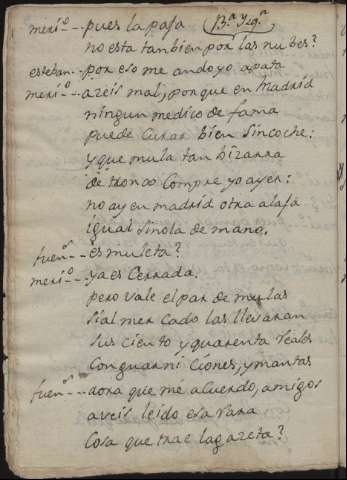 13.ª y 19.ª
meri.º -- pues la paja
no esta tambien por las nubes?
esteban.-- por eso me ando yo apata
meri.º -- azeis mal; porque en Madrid
ningun medico de fama
puede curar bien sin coche:
y que mula tan bizarra
de tronco compre yo ayer:
no ay en madrid otra alaja
igual sinola de mano.
fuen.º -- es muleta?
meri.º -- ya es Cerrada.
pero vale el par de mulas
si al mercado las llevaran
sus ciento y quarenta reales
con guarniciones, y mantas
fuen.º --- aora que me acuerdo, amigos
aveis leido esa rara
cosa que trae la gazeta?